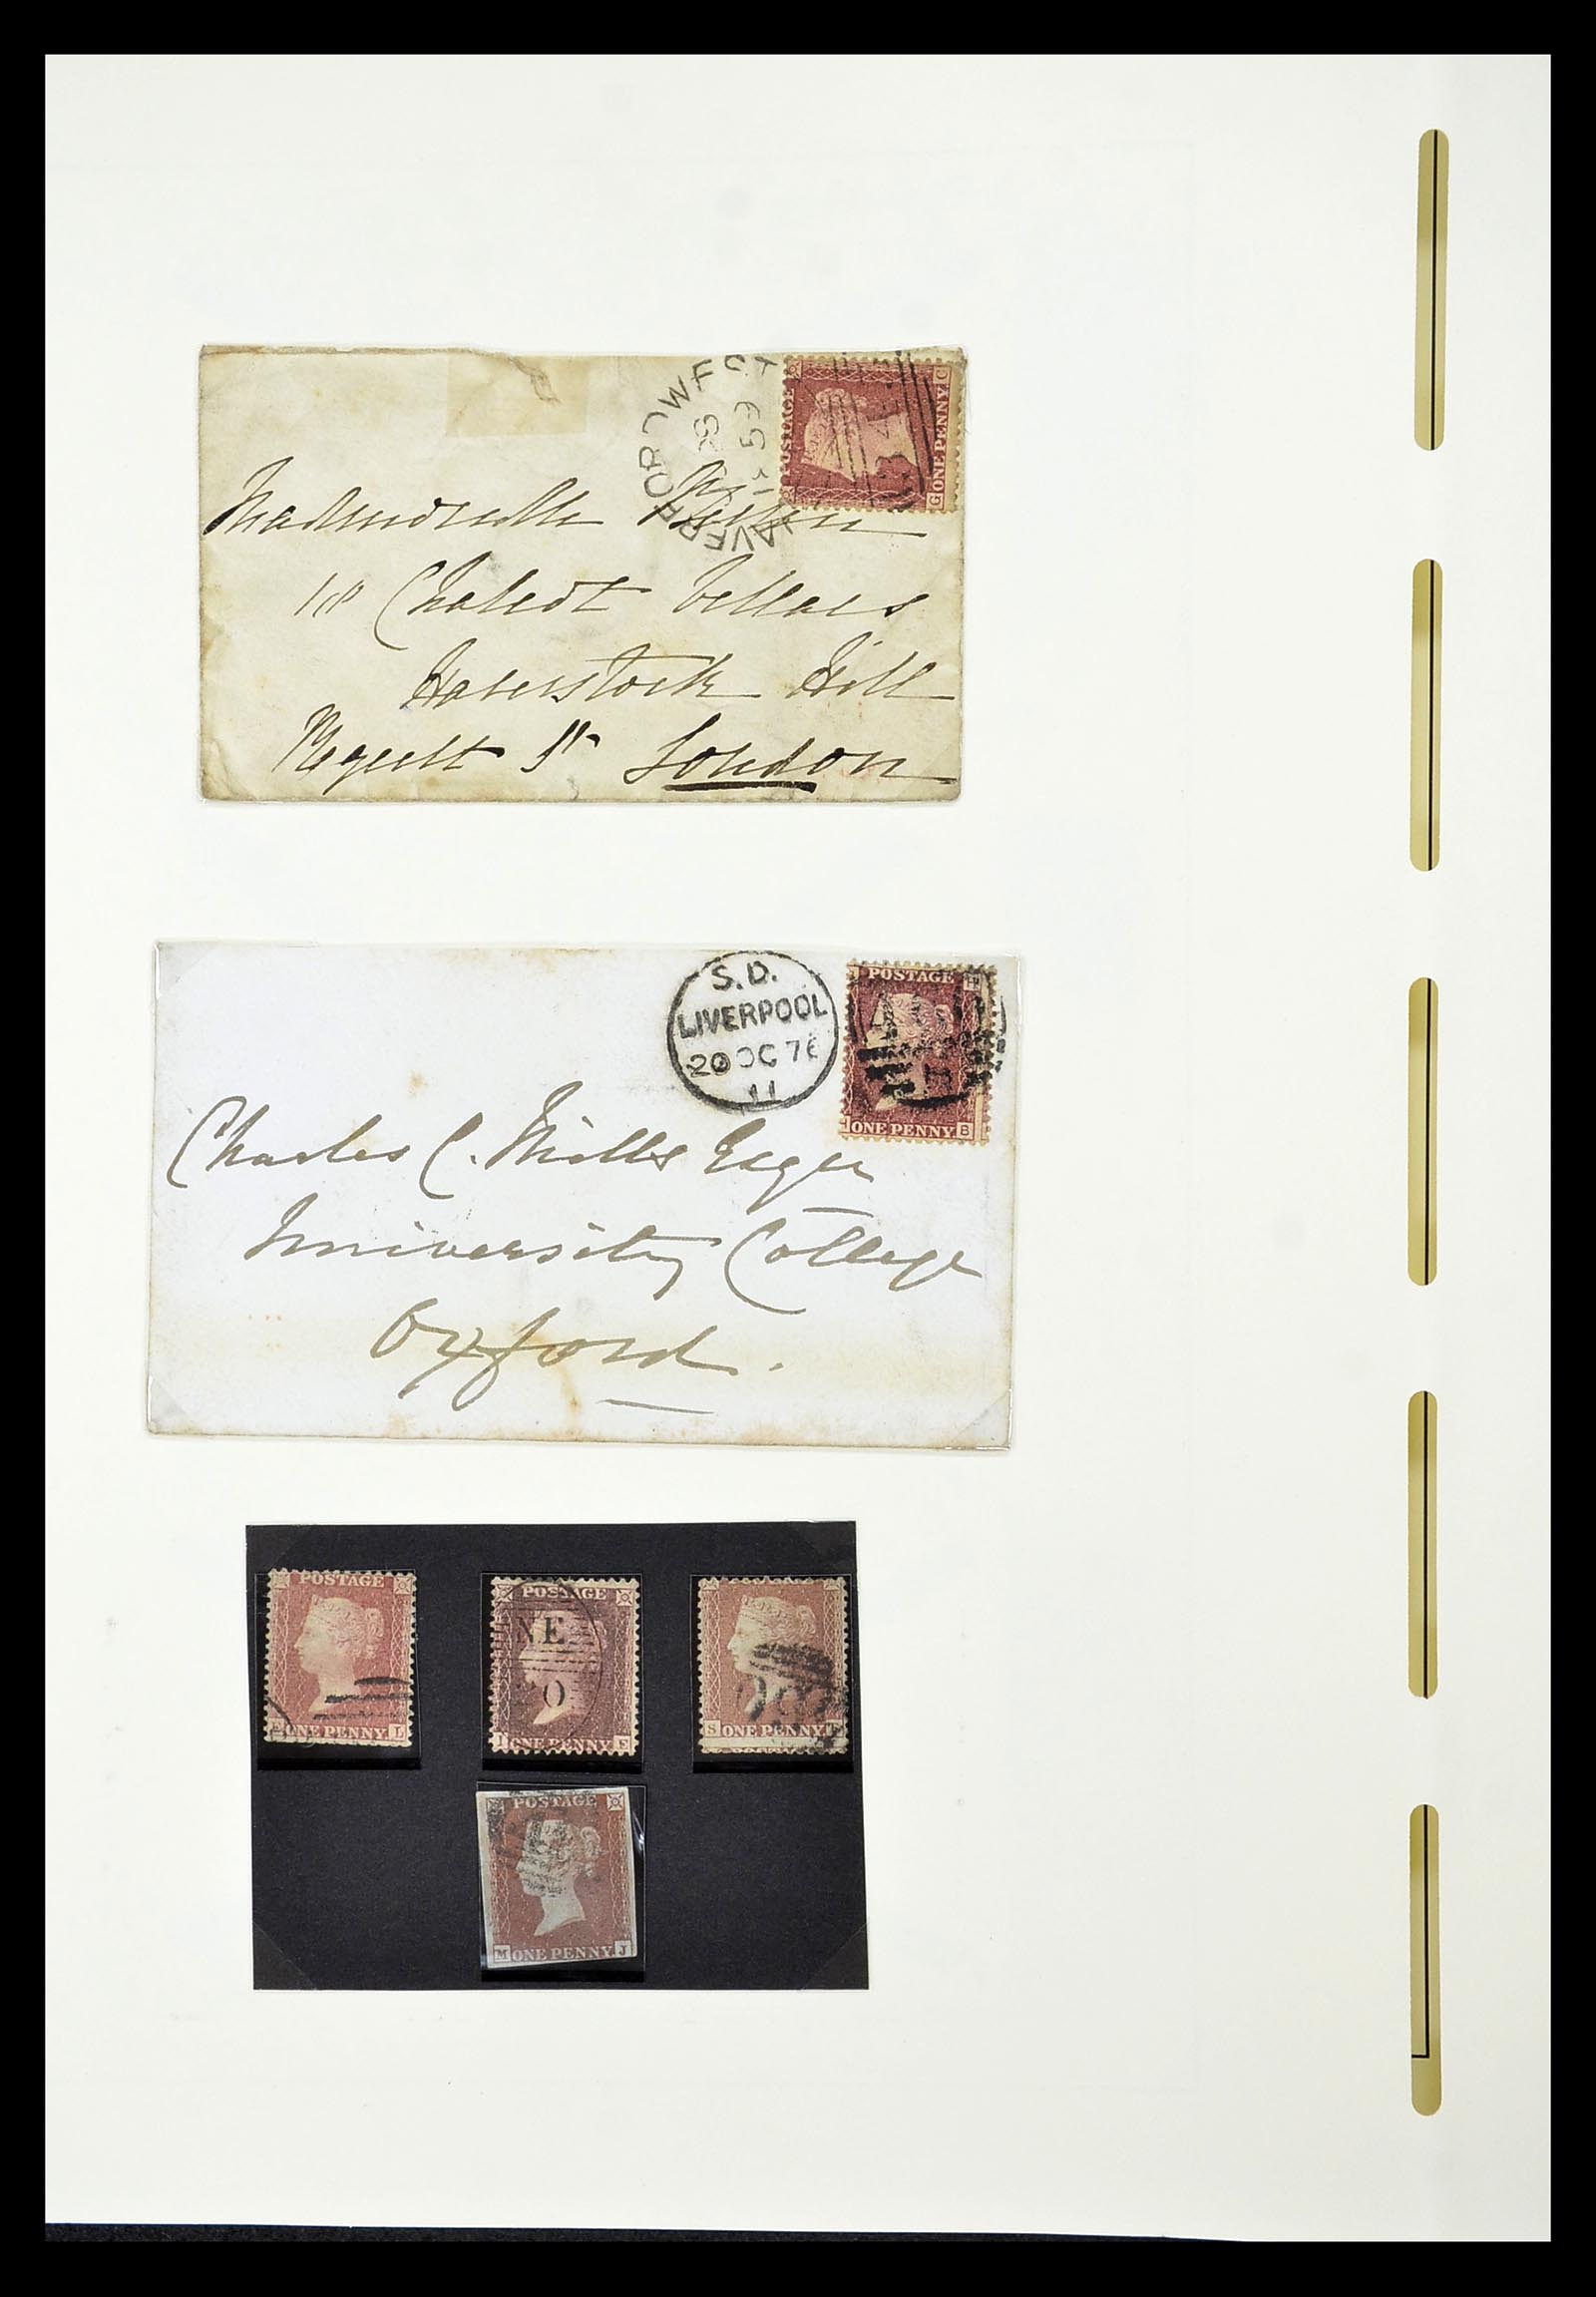 HAVERFORDWEST
28
59
POSTAGE
C
G ONE PENNY
18 Chalcot Villas
Haverstock Hill
Regent St London
S.D.
LIVERPOOL
20 OC 76
11
POSTAGE H
ONE PENNY B
Charles C. Mills Esqre
University College
Oxford.
POSTAGE
ONE PENNY L
POSTAGE
NE
O
ONE PENNY
S ONE PENNY
POSTAGE
M ONE PENNY J